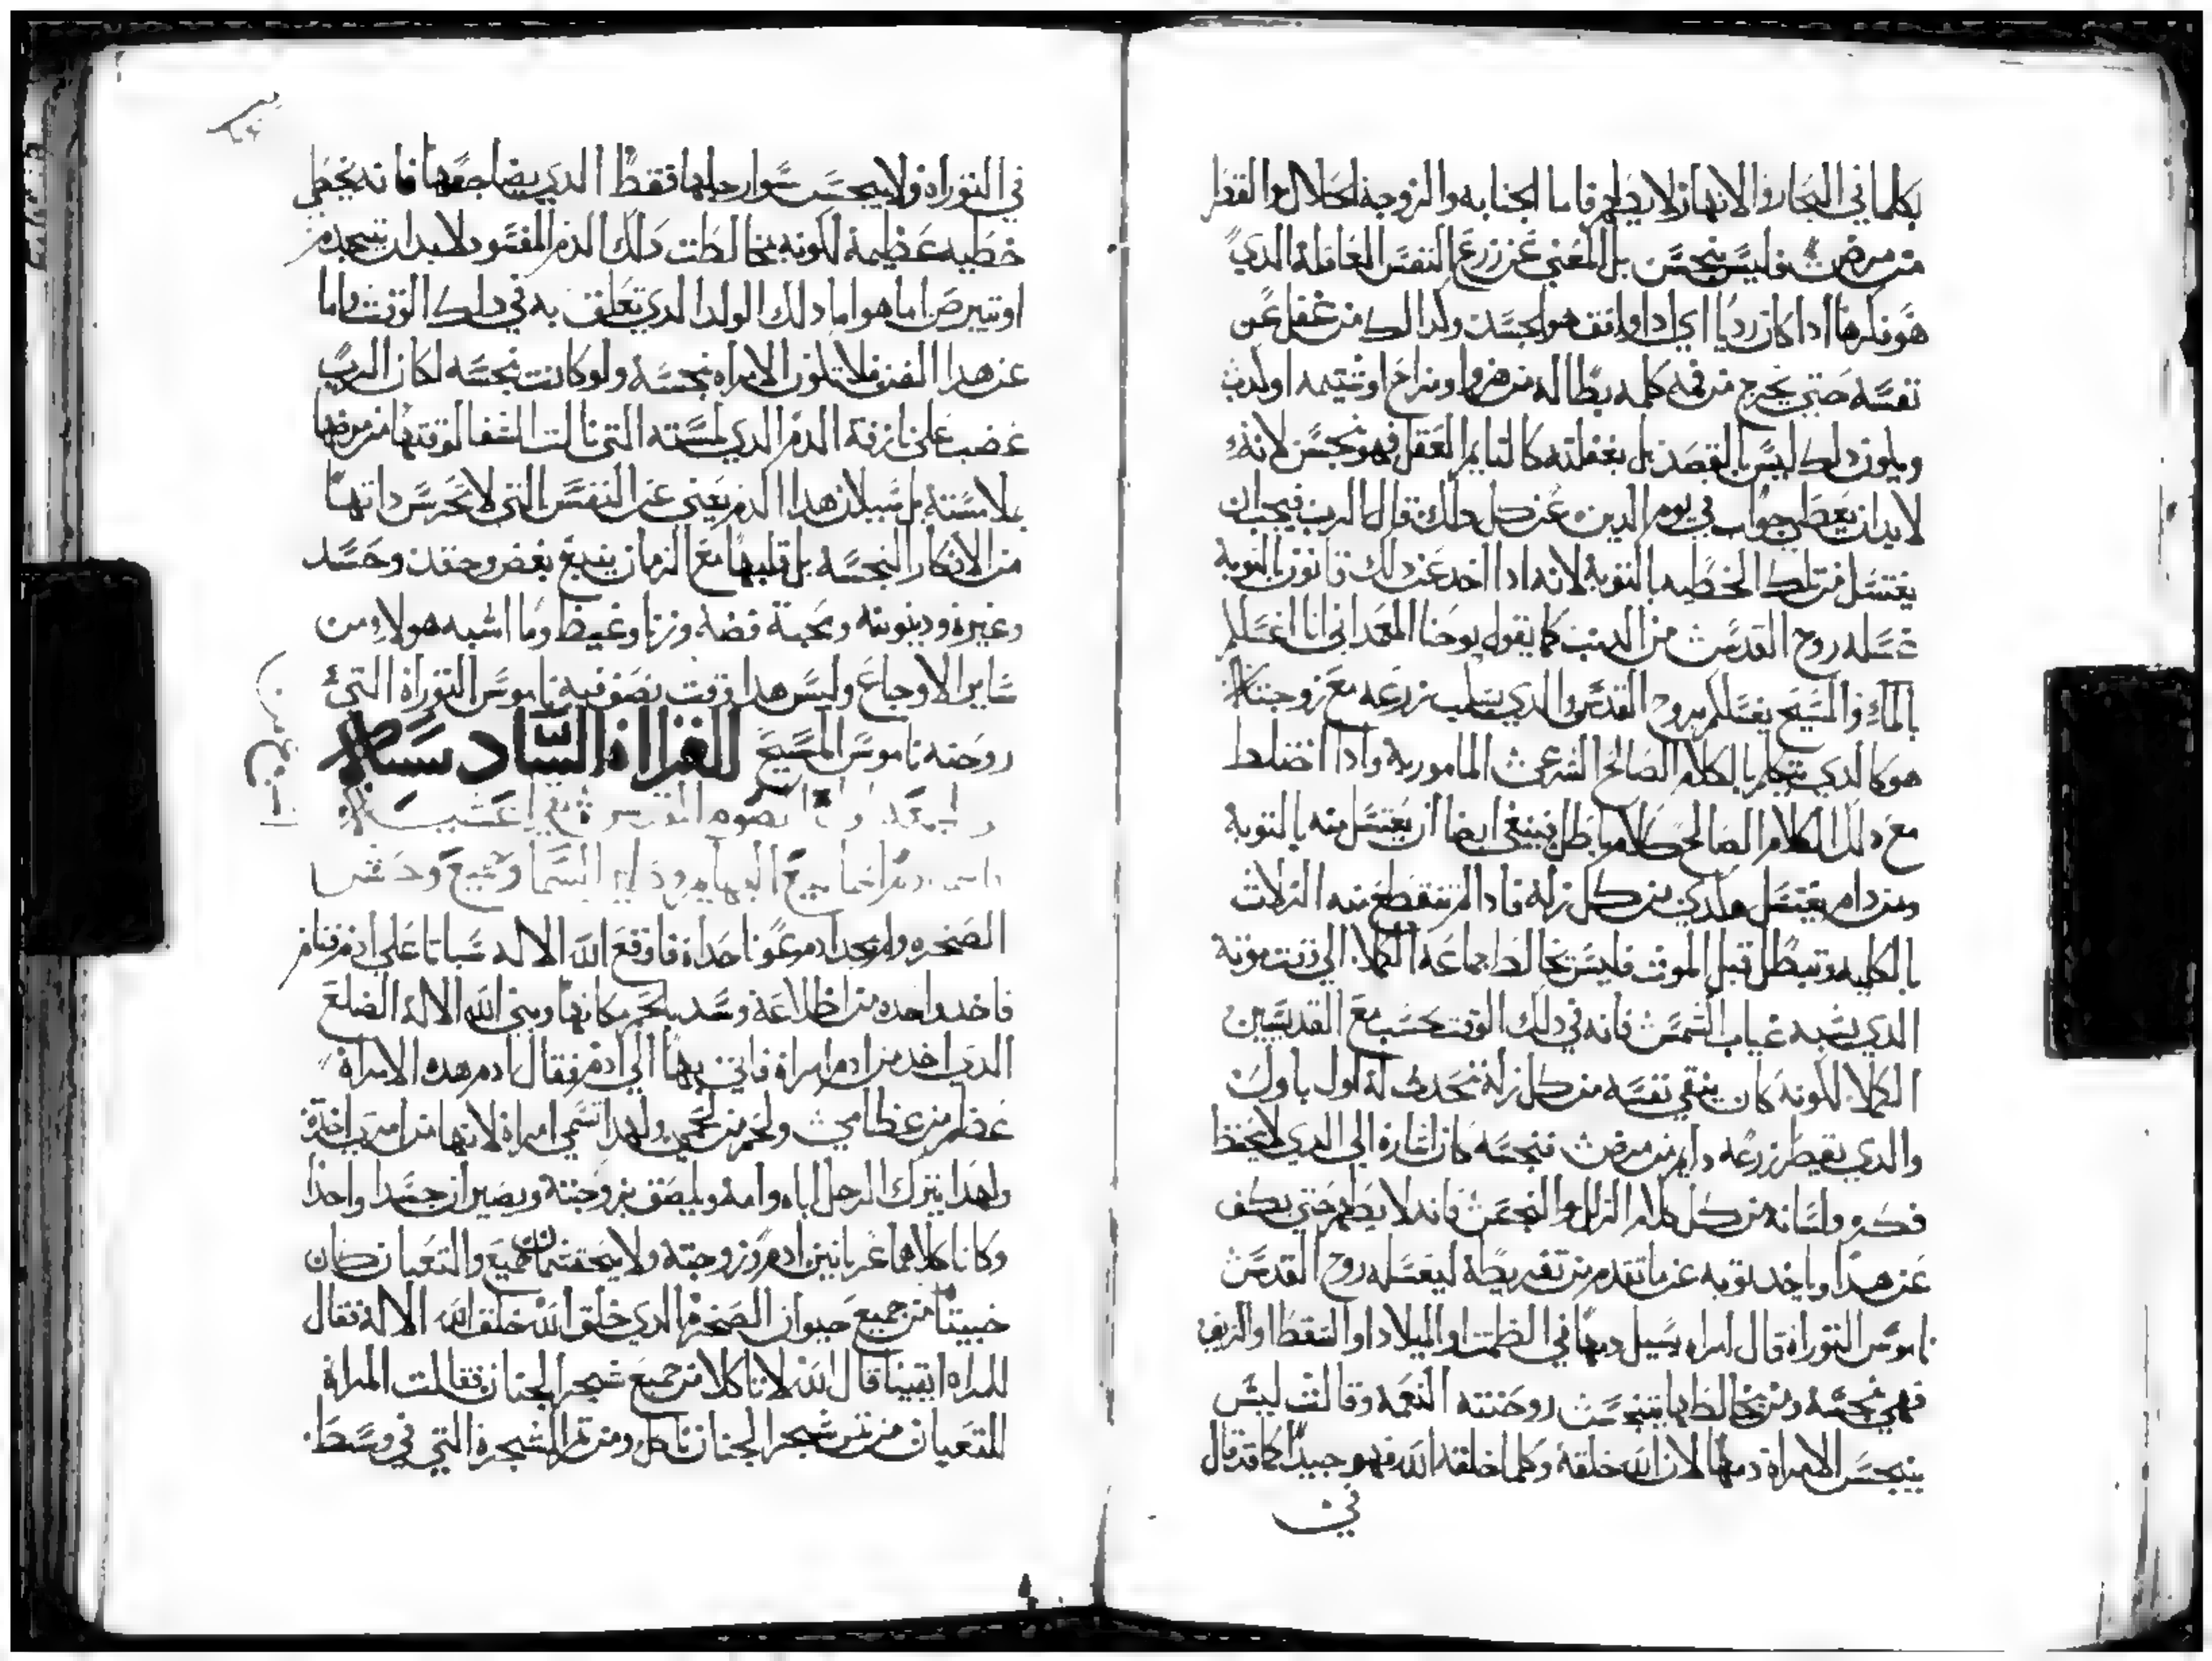 بكلما في البحار والانهار لا يطهر فاما الجنابه والزوجة الحلال والقطر
من مرض فليس ينجس بل المعنى عن زرع النفس العاملة الذي
هو فكرها ادا كان رديا اي ادا وافق هوا لجسد ولدالك من غفل عن
نفسه حتى يخرج من فمه كلمه بطاله من هزوا ومزاح او شتيمه او لدب
ويلون دلك ليس بالقصد بل بغفلته كالنايم العقل فهو نجس لانه
لابد ان يعطي جواب في يوم الدين عن كل دلك قال الرب فيجب ان
يغتسل من تلك الخطيه بالتوبه لانه ادا اخد عن دلك قانون التوبه
غسله روح القدس من الدنب كما يقول يوحنا المعمداني انا اغسلكم
بالماء والمسيح يغسلكم بروح القدس والدي يسلب زرعه مع زوجته
هو كالدي يتكلم بالكلام الصالح الشرعي المامور به وادا اختلط
مع دلك الكلام الصالح كلام باطل فينبغي ايضا ان يغتسل منه بالتوبه
ومن دام يغتسل هكدي من كل زله فادا لم تنقطع منه الزلات
بالكليه وتبطل قبل الموت فليس يخالط جماعة الكملا الى وقت موته
الدي يشبه غياب الشمس فانه في دلك الوقت يحسب مع القديسين
الكملا لكونه كان ينقي نفسه من كل زلة تحدث له اول باول
والدي يقطر زرعه دايم من مرض فنجسه كان اشارة الى الدي لا يحفظ
فكره ولسانه من كل كلام الزلل والنجس فانه لا يطهر حتى يكف
عن هدا وياخد توبه عن ما تقدم من تفريطه ليغسله روح القدس
ناموس التوراة قال امراه يسيل دمها في الطمت او الميلاد او السقط او النزيف
فهي نجسه ومن يخالطها يتنجس روحنته النعمه وقالت ليس
ينجس الامراة دمها لان الله خلقة وكلما خلقه الله فهو جيدا كما قد قال
في
في التوراه ولا ينجس رجلها فقط الدي يضاجعها فانه يخطي
خطيه عظيمة لكونه يخالطت دلك الدم المفسود لابد ان يتجدم
او يتبرص اما هو اما دلك الولد الدي تعلق به في دلك الوقت واما
عن هدا الفن فلا تلون الامراه نجسة ولو كانت نجسه لكان الرب
غضب على نازفة الدم الدي لمسته التي نالت الشفا لوقتها من مرضها
بلامسته بل سبيلان هدا الدم يعني عن النفس التي لا تحرس داتها
من الافكار النجسه بل قلبها مع الزمان ينبع بغض وحقد وحسد
وغيره ودينونه ومحبة فضة وزنا وغيظ وما اشبه هولاء من
ساير الاوجاع وليس هدا وقت نصف فيه ناموس التوراة التي
روحنه ناموس المسيح القراة السادسة
الصخره ولم يجد ادم عونا حداه فاوقع الله الاله سباتا على ادم فنام
فاخد واحده من اضلاعة وسد بلحم مكانها وبنى الله الالة الضلع
الدي اخد من ادم امراة فاتى بها الى ادم فقال ادم هده الامراة
عظم من عظامي ولحم من لحمي ولهدا تسمى امراة لانها من امرء اخدة
ولهدا يترك الرجل اباه وامه ويلصق بزوجته ويصيران جسدا واحدا
وكانا كلاهما عريانين ادم وزوجته ولا يحتشمان جميع والتعبان كان
خبيتا من جميع حيوان الصخرة الدي خلق الله خلق الله الالة فقال
للمراه ايقينا قال الله لا تاكلا من جميع شجر الجنان فقالت المراة
للتعبان من تمر شجر الجنان ناكل ومن تمر الشجرة التي في وسط